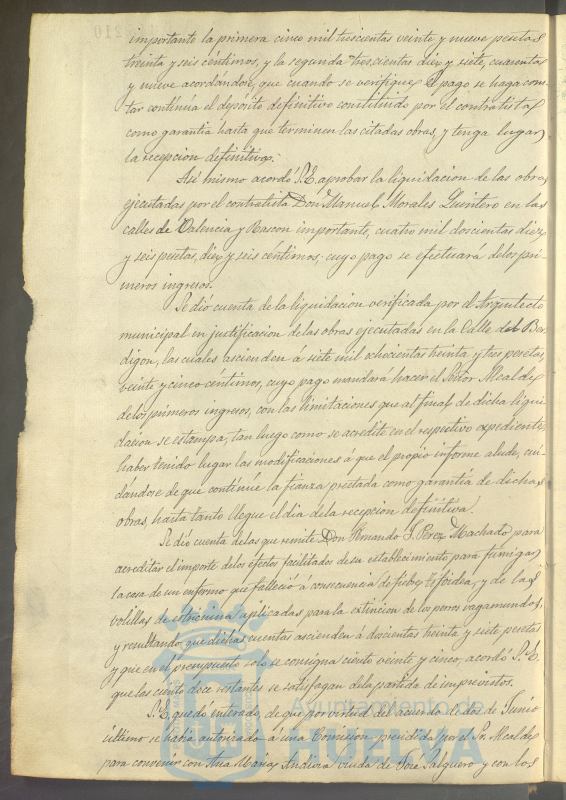 importante la primera cinco mil trescientas veinte y nueve pesetas
treinta y seis céntimos, y la segunda trescientas diez y siete, cuarenta
y nueve acordándose, que cuando se verifique el pago se haga cons-
tar continua el depósito definitivo constituido por el contratista
como garantía hasta que terminen las citadas obras, y tenga lugar
la recepcion definitiva.
Asi mismo acordó S.E. aprobar la liquidacion de las obras
ejecutadas por el contratista Don Manuel Morales Quintero en las
calles de Valencia y Rascon importante, cuatro mil doscientas diez
y seis pesetas, diez y seis céntimos, cuyo pago se efectuará de los pri-
meros ingresos.
Se dió cuenta de la liquidacion verificada por el Arquitecto
municipal en justificacion de las obras ejecutadas en la Calle del Ber-
digon, las cuales ascienden á siete mil ochocientas treinta y tres pesetas,
veinte y cinco céntimos, cuyo pago mandará hacer el Señor Alcalde
de los primeros ingresos, con las limitaciones que al final de dicha liqui-
dacion se estampa, tan luego como se acredite en el respectivo expediente,
haber tenido lugar las modificaciones á que el propio informe alude, cui-
dándose de que continúe la fianza prestada como garantía de dichas
obras, hasta tanto llegue el dia de la recepcion definitiva.
Se dió cuenta de las que remite Don Fernando J. Perez Machado, para
acreditar el importe de los efectos facilitados de su establecimiento para fumigar
la casa de un enfermo que falleció á consecuencia de fiebre tifoidea, y de las
bolillas de estricnina aplicadas para la extincion de los perros vagamundos,
y resultando, que dichas cuentas ascienden á doscientas treinta y siete pesetas
y que en el presupuesto solo se consigna ciento veinte y cinco, acordó S.E.
que las ciento doce restantes se satisfagan de la partida de imprevistos.
S.E. quedó enterado, de que por virtud del acuerdo de dos de Junio
último se habia autorizado á una Comision presidida por el Sr. Alcalde
para convenir con Ana Maria Andivia viuda de José Salguero y con los
Ayuntamiento de
HUELVA